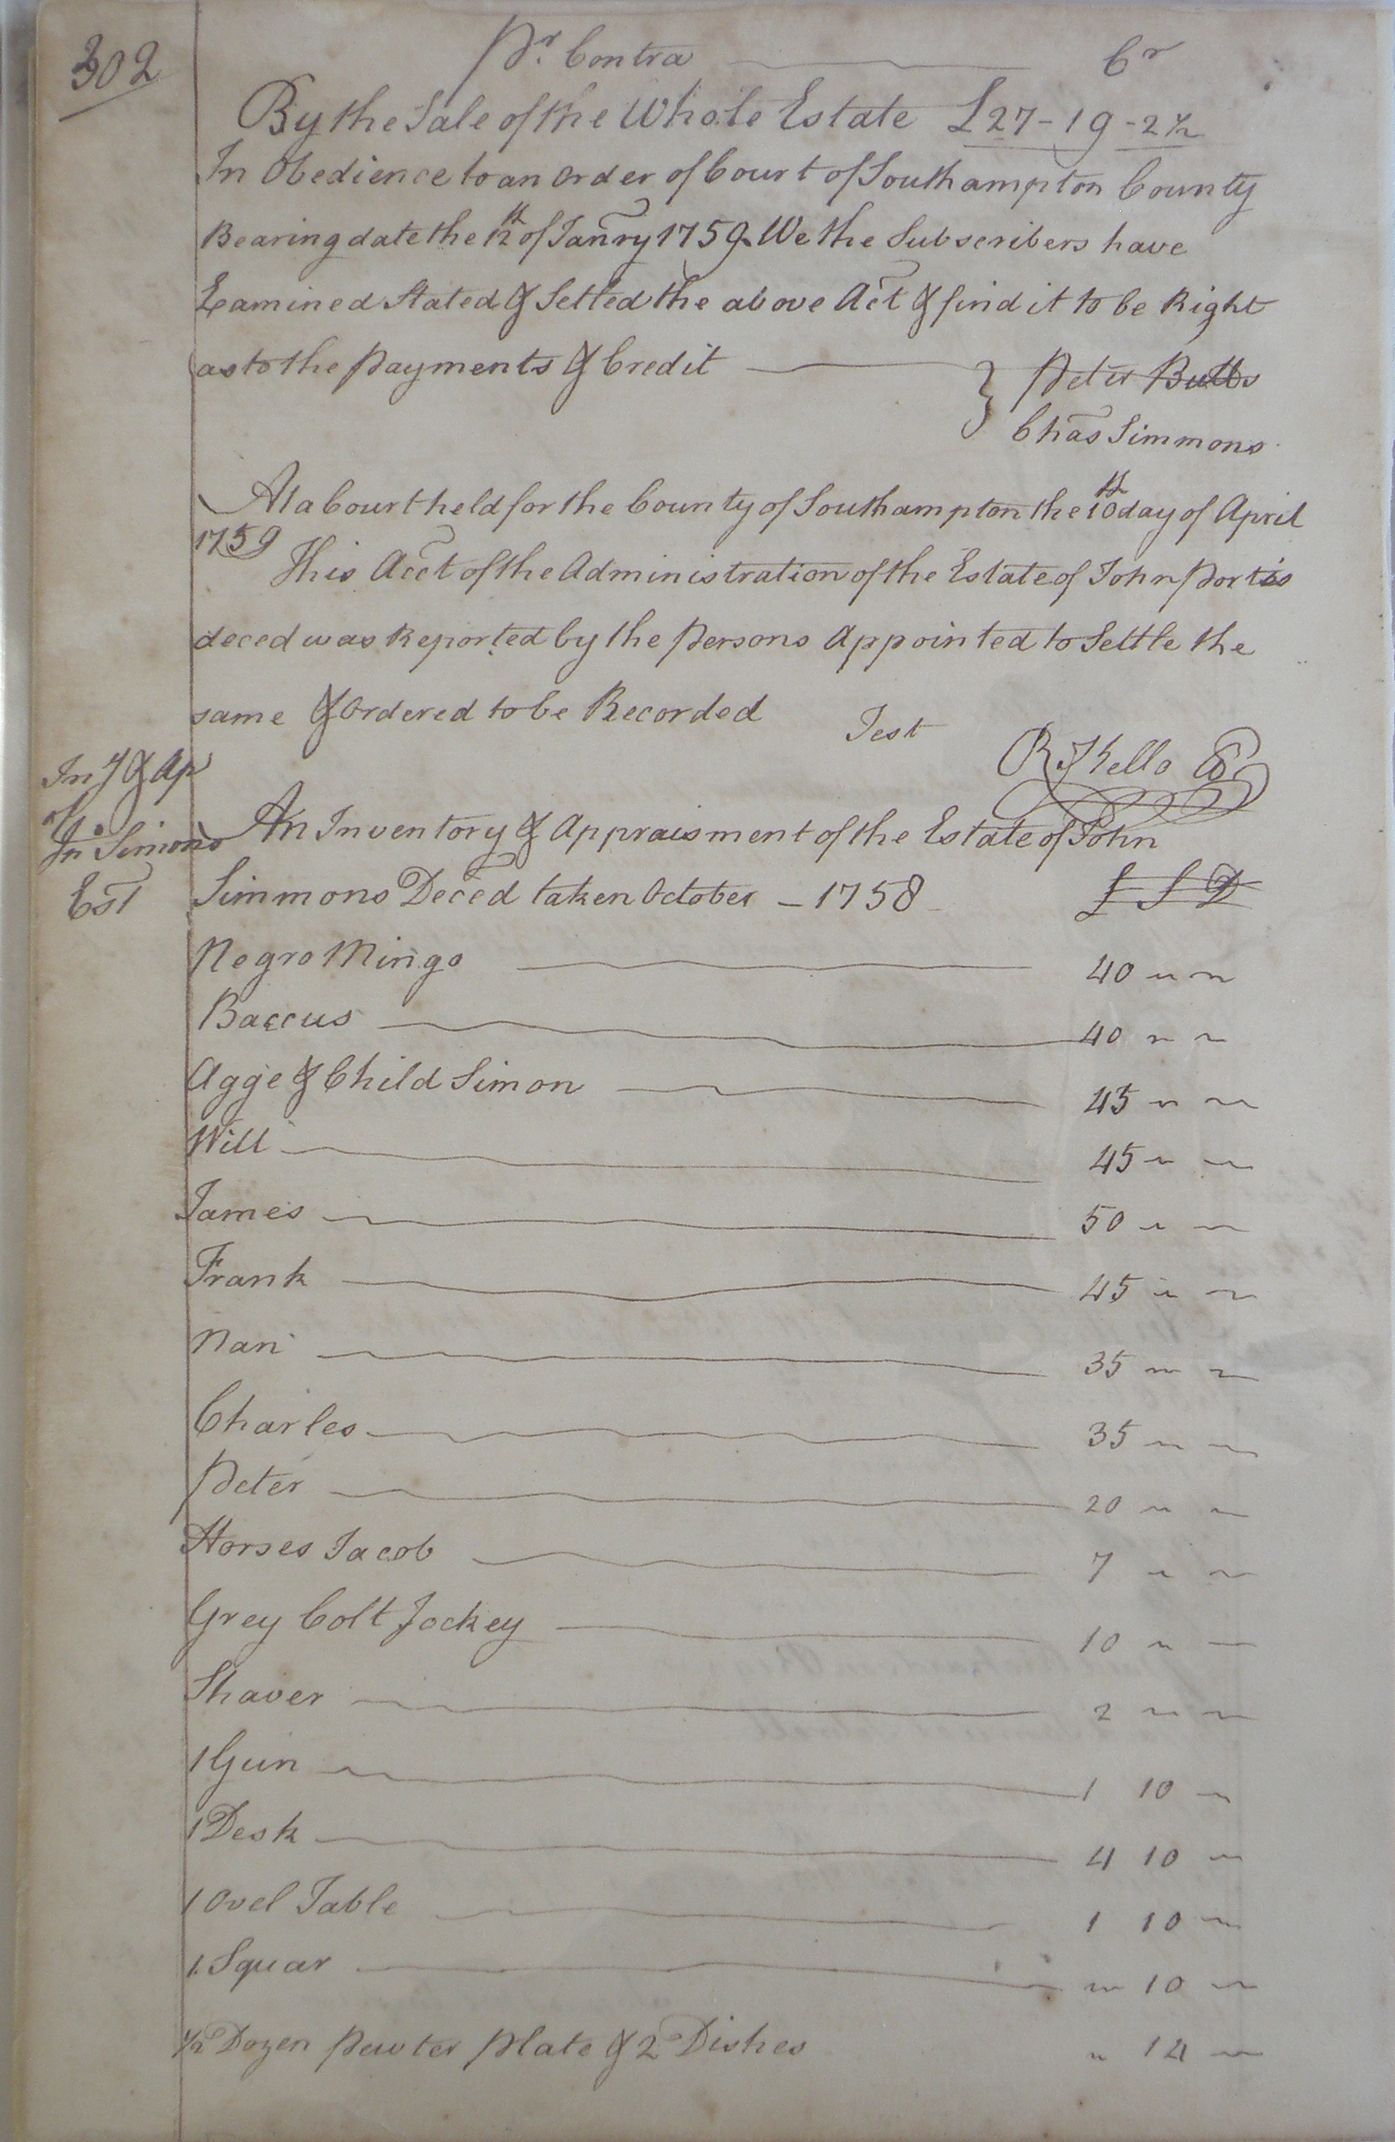 302
Pr. Contra Cr
By the Sale of the Whole Estate £27-19-2½
In Obedience to an Order of Court of Southampton County
Bearing date the 12th of Janry 1759. We the Subscribers have
Examined Stated & Setled the above Act & find it to be Right
as to the Payments & Credit } Peter Butts
Chas Simmons
At a Court held for the County of Southampton the 10th day of April
1759
This Acct of the Administration of the Estate of John Portis
deced was Reported by the Persons Appointed to Settle the
same & Ordered to be Recorded
Test
R Kello
Inv & Ap
of
Jno Simons
Est
An Inventory & Appraisment of the Estate of John
Simmons Deced taken October - 1758 £ S D
Negro Mingo 40 " "
Baccus 40 " "
Agge & Child Simon 45 " "
Will 45 " "
James 50 " "
Frank 45 " "
Nan 35 " "
Charles 35 " "
Peter 20 " "
Horses Jacob 7 " "
Grey Colt Jockey 10 " "
Shaver 2 " "
1 Gun 1 10 "
1 Desk 4 10 "
1 Ovel Table 1 10 "
1 Squar " 10 "
½ Dozen Pewter Plate & 2 Dishes " 14 "